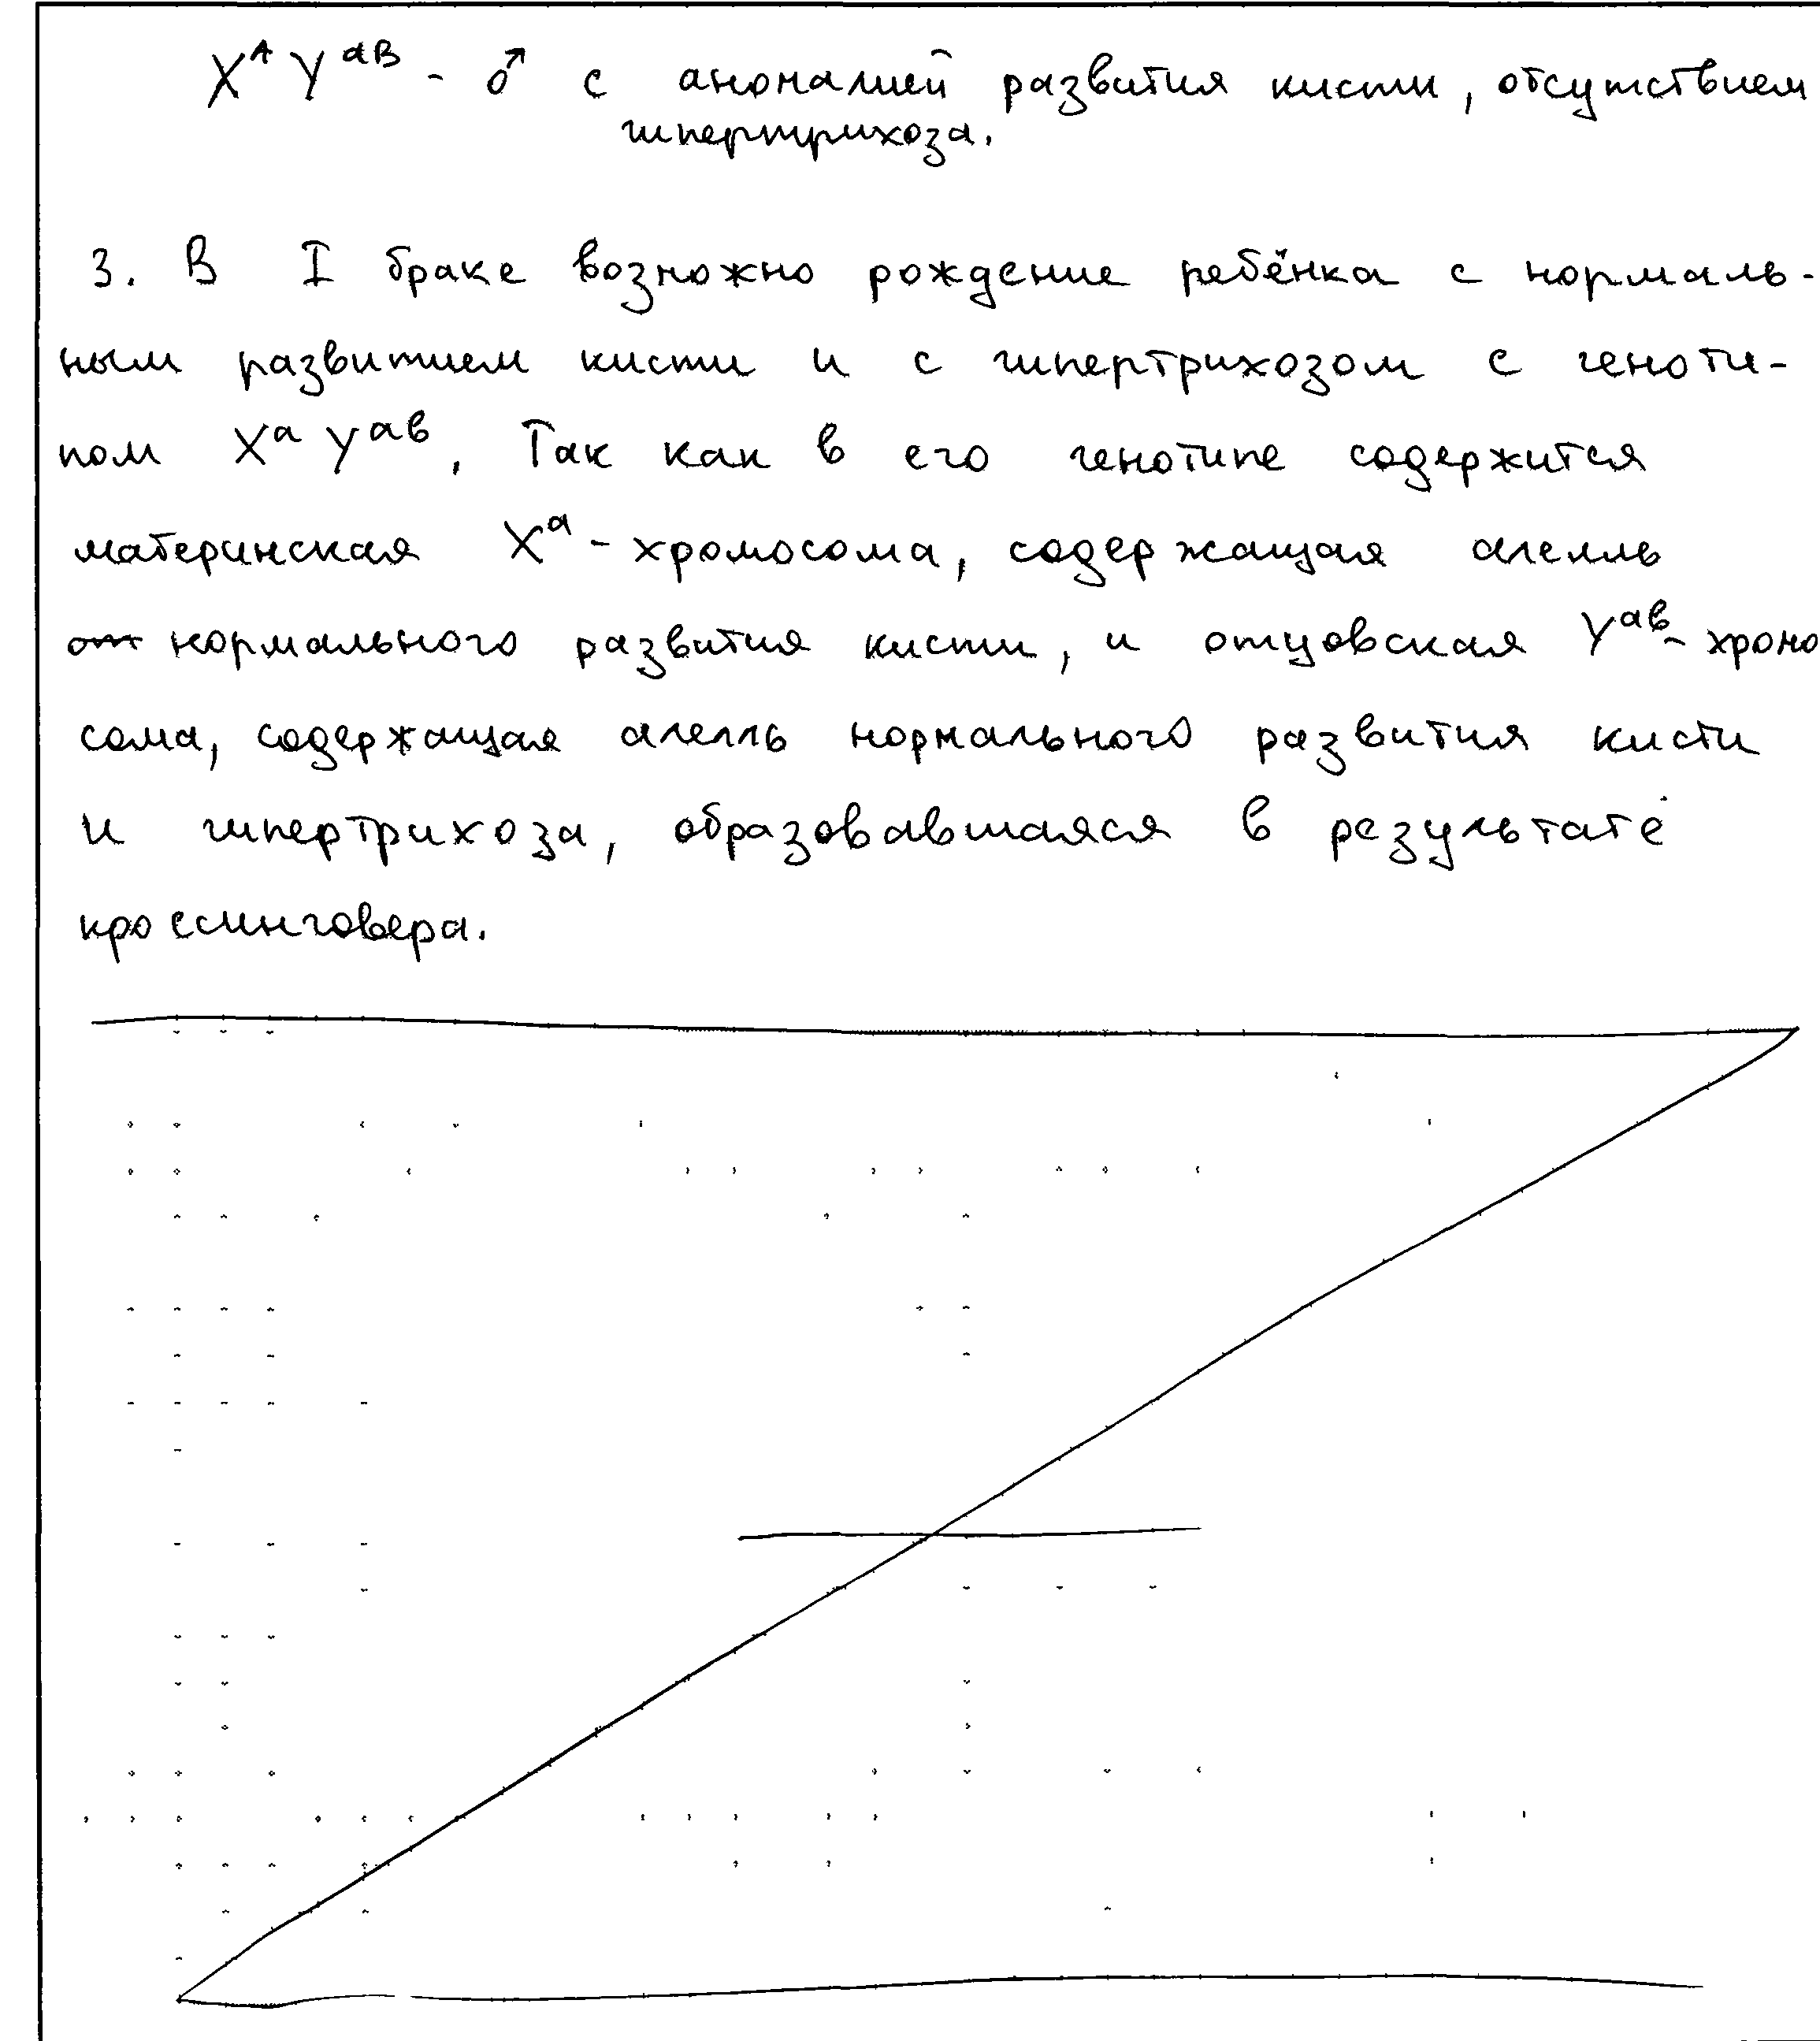 X^A Y^aB - ♂ с аномалией развития кисти, отсутствием
гипертрихоза.
3. В I браке возможно рождение ребёнка с нормаль-
ным развитием кисти и с гипертрихозом с геноти-
пом X^a Y^ab, Так как в его генотипе содержится
материнская X^a - хромосома, содержащая алелль
нормального развития кисти, и отцовская Y^ab - хромо
сома, содержащая алелль нормального развития кисти
и гипертрихоза, образовавшаяся в результате
кроссинговера.